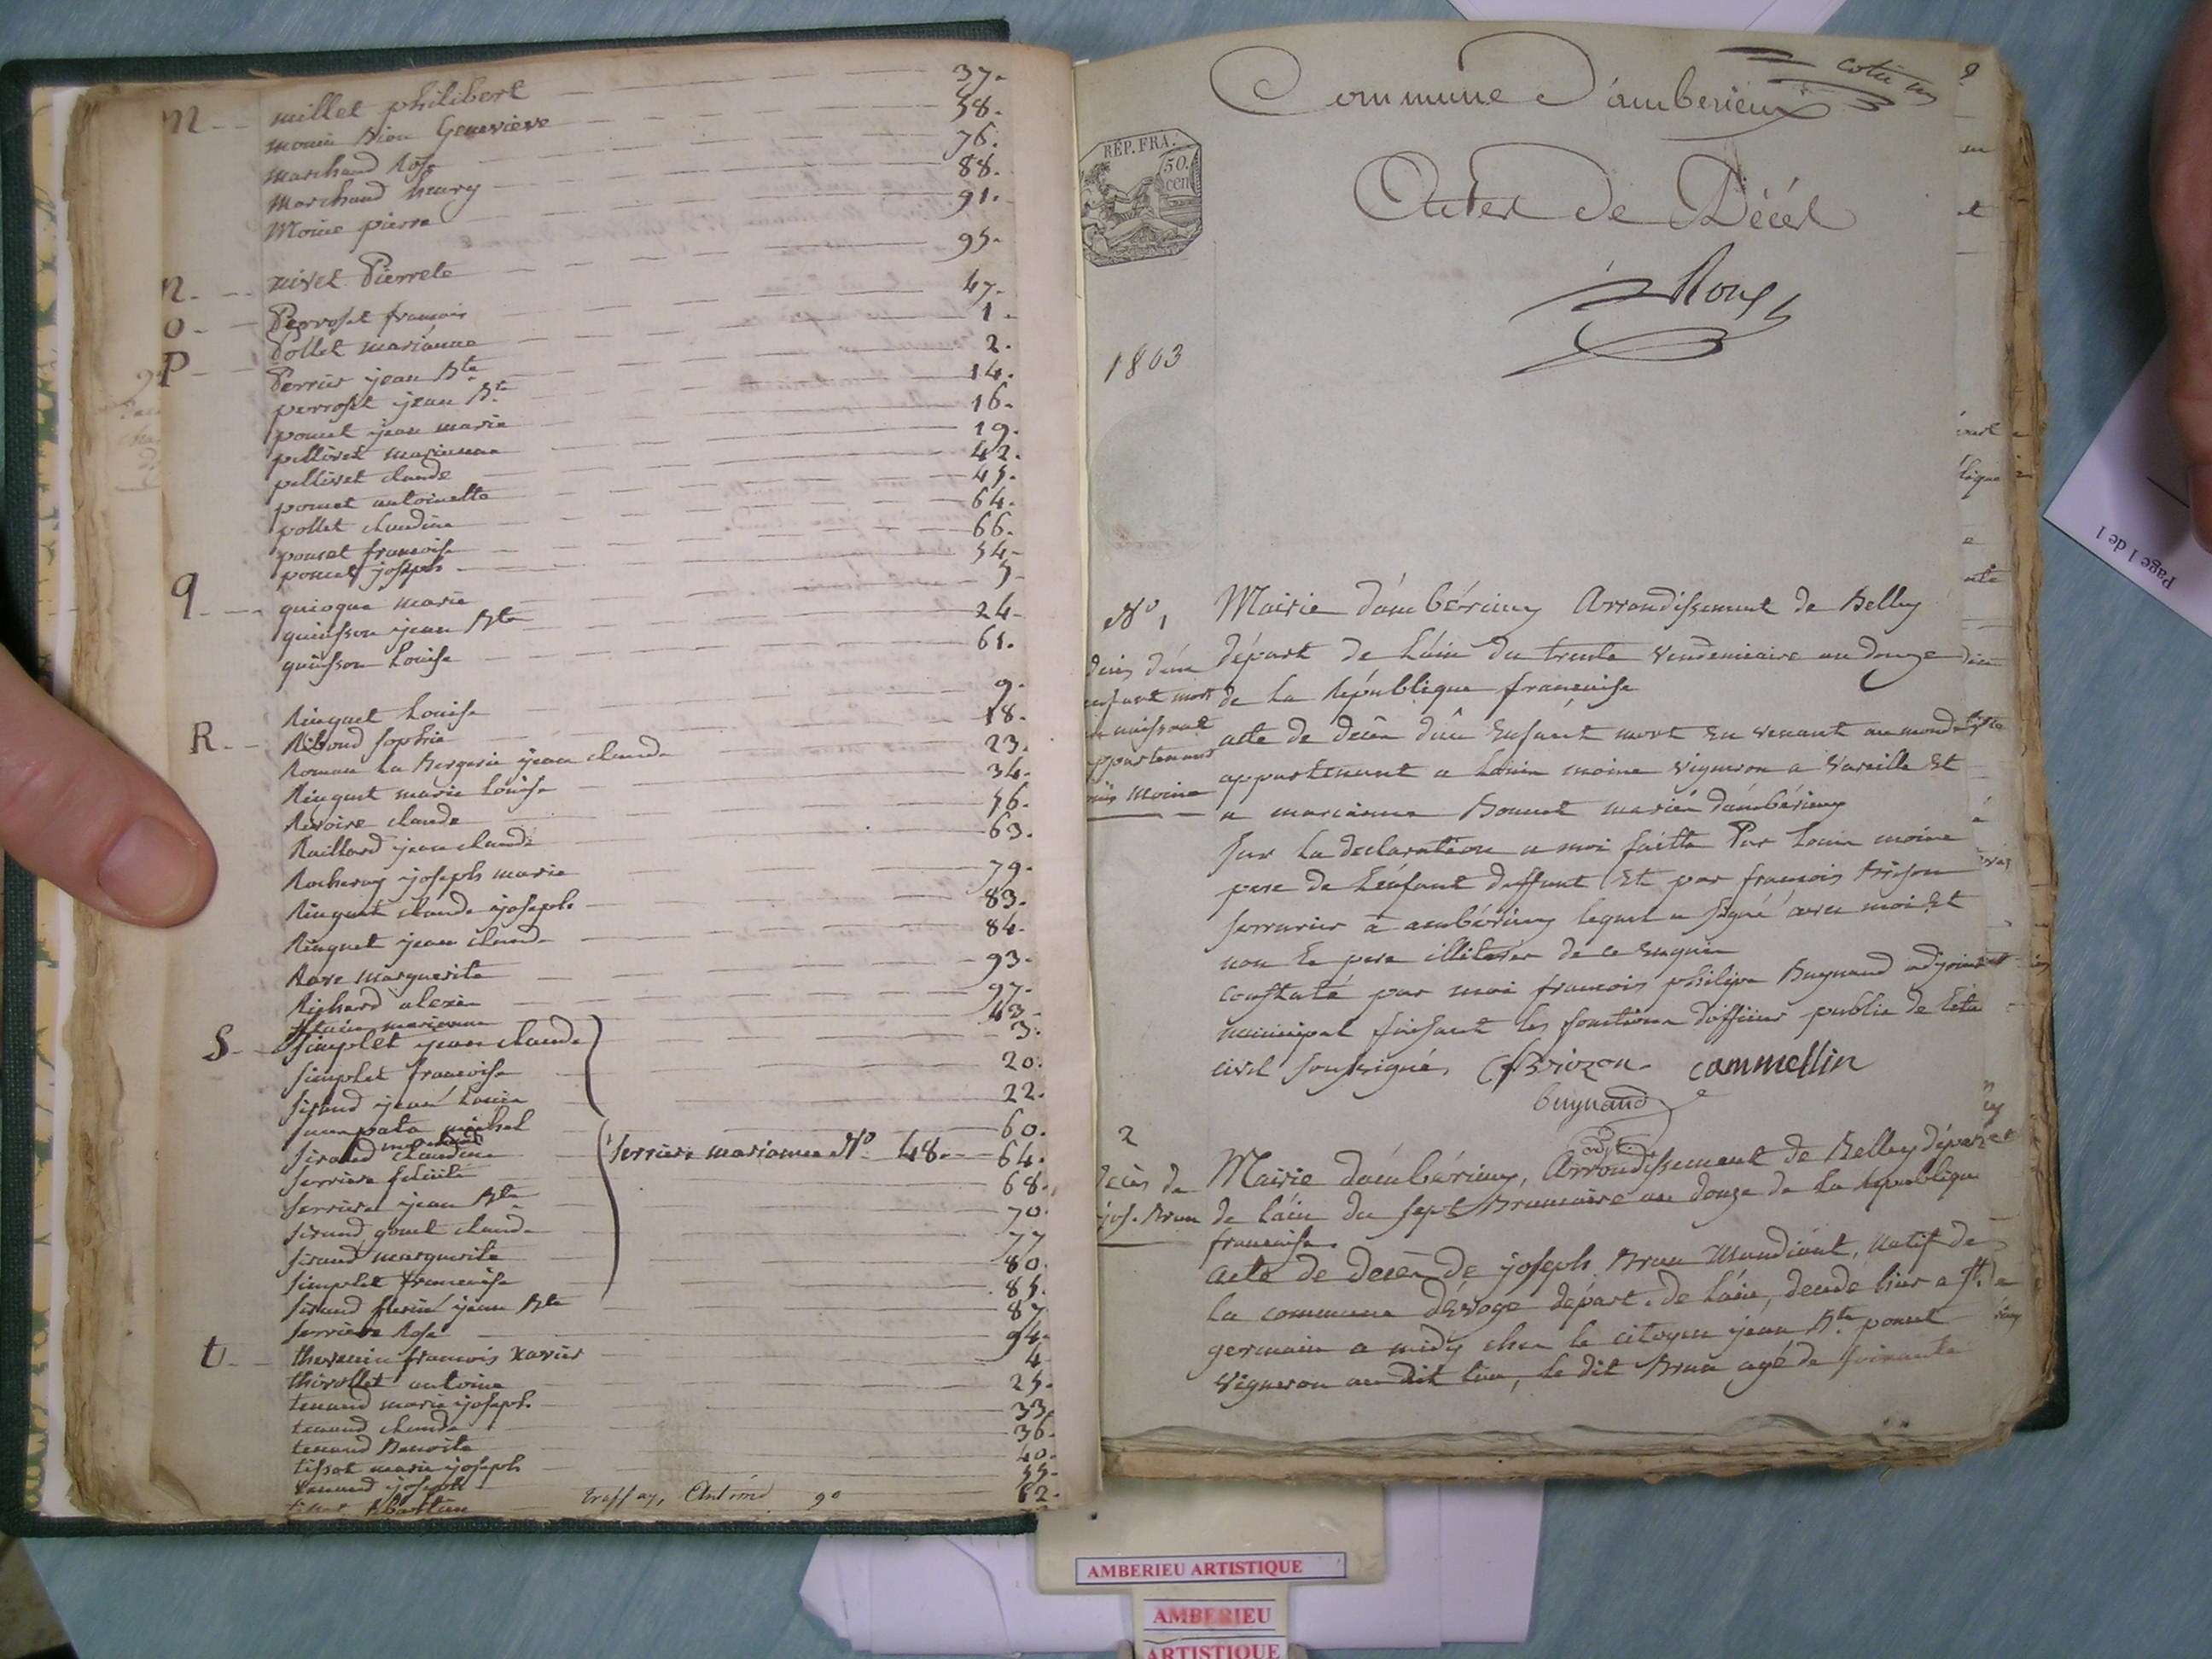 m
millet philibert 37.
58.
marchand Rose 76.
marchand henry 88.
Moine pierre 91.
n. nivet Pierrete 95.
o. Perroset francois 47.
P Pollet marianne 1.
Perrier jean Bte 2.
perroset jean Bte 14.
poncet jean marie 16.
pellivet marianne 19.
pellivet claude 42.
poncet antoinette 45.
pollet claudine 64.
poncet francoise 66.
poncet joseph 54.
q quioque marie 5.
quinsson jean Bte 24.
quinsson Louise 61.
Ringuet Louise 9.
R. Riboud sophie 18.
Roman La Bergerie jean claude 23.
Ringuet marie Louise 34.
Revoire claude 56.
Raillard jean claude 63.
Rocheray joseph marie 79.
Ringuet claude joseph 83.
Ringuet jean claude 84.
Rave marguerite 93.
Richard alexis 97.
marianne 43.
S simplet jean claude 3.
simplet francoise 20.
sirand jean Louis 22.
michel 60.
sirand claudine serriere marianne No. 48. 64.
serriere felicité 68.
serriere jean Bte 70.
sirand gonet claude 77
sirand marguerite 80.
simplet francoise 85.
sirand jean Bte 87
serriere Rose 94.
t. thevenin francois xavier 4
thivollet antoine 25.
tenand marie joseph. 33.
tenand claude 36.
tenand Benoite 40.
tissot marie joseph 55.
tenand joseph 62.
Traffay, Antoine 90
cotte
2
Commune d'amberieux
Actes de Décès
Roux
REP. FRA.
50.
cen
1803
No 1
Mairie d'ambérieux Arrondissement de Belley
départ de L'ain du trente vendemiaire an douze
de la République francaise
décès d'un
enfant mort
en naissant
appartenant
Louis Moine
acte de décès d'un Enfant mort en venant au monde
appartenant a Louis moine vigneron a vareille Et
a marianne Bonnet mariés d'ambérieux
sur La declaration a moi faitte Par Louis moine
pere de L'enfant deffunt Et par francois Brison
serrurier à ambérieux lequel a signé avec moi Et
non Le pere illiteré de ce Enquis
constaté par moi francois philipe Bugnand adjoint
municipal faisant les fonctions d'officier public de L'éta
civil soussigné. Briozon. cammellin
bugnand
adjt
2
décès de
jos. Brun
Mairie d'ambérieux, Arrondissement de Belley départ
de L'ain du sept Brumaire an douze de la république
francaise.
acte de decès de joseph Brun Mandiant, natif de
la commune d'Evoge départ. de L'ain, decédé hier a St.
germain a midy chez le citoyen jean Bte poncet
vigneron au dit lieu, le dit Brun agé de soixante
Page 1 de 1
AMBERIEU ARTISTIQUE
AMBERIEU
ARTISTIQUE